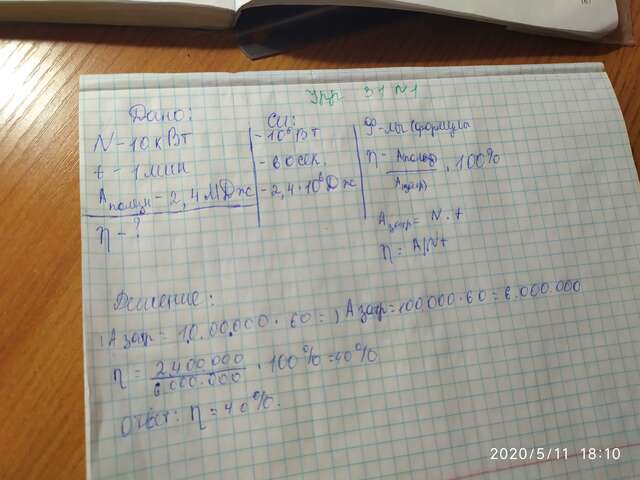 Упр 31 N1
Дано:
N - 10 кВт
t - 1 мин
Aполезн - 2,4 МДж
η - ?
Си:
- 10⁶ Вт
- 60 сек.
- 2,4·10⁶ Дж
Ф-лы (формулы
η - Aполезн / Aзатр) · 100%
Aзатр = N · t
η = A/Nt
Решение:
Aзатр = 10.00.000 · 60 = , Aзатр = 100.000 · 60 = 6.000.000
η = 2.400.000 / 6.000.000 · 100% = 40%
Ответ: η = 40%.
2020/5/11 18:10